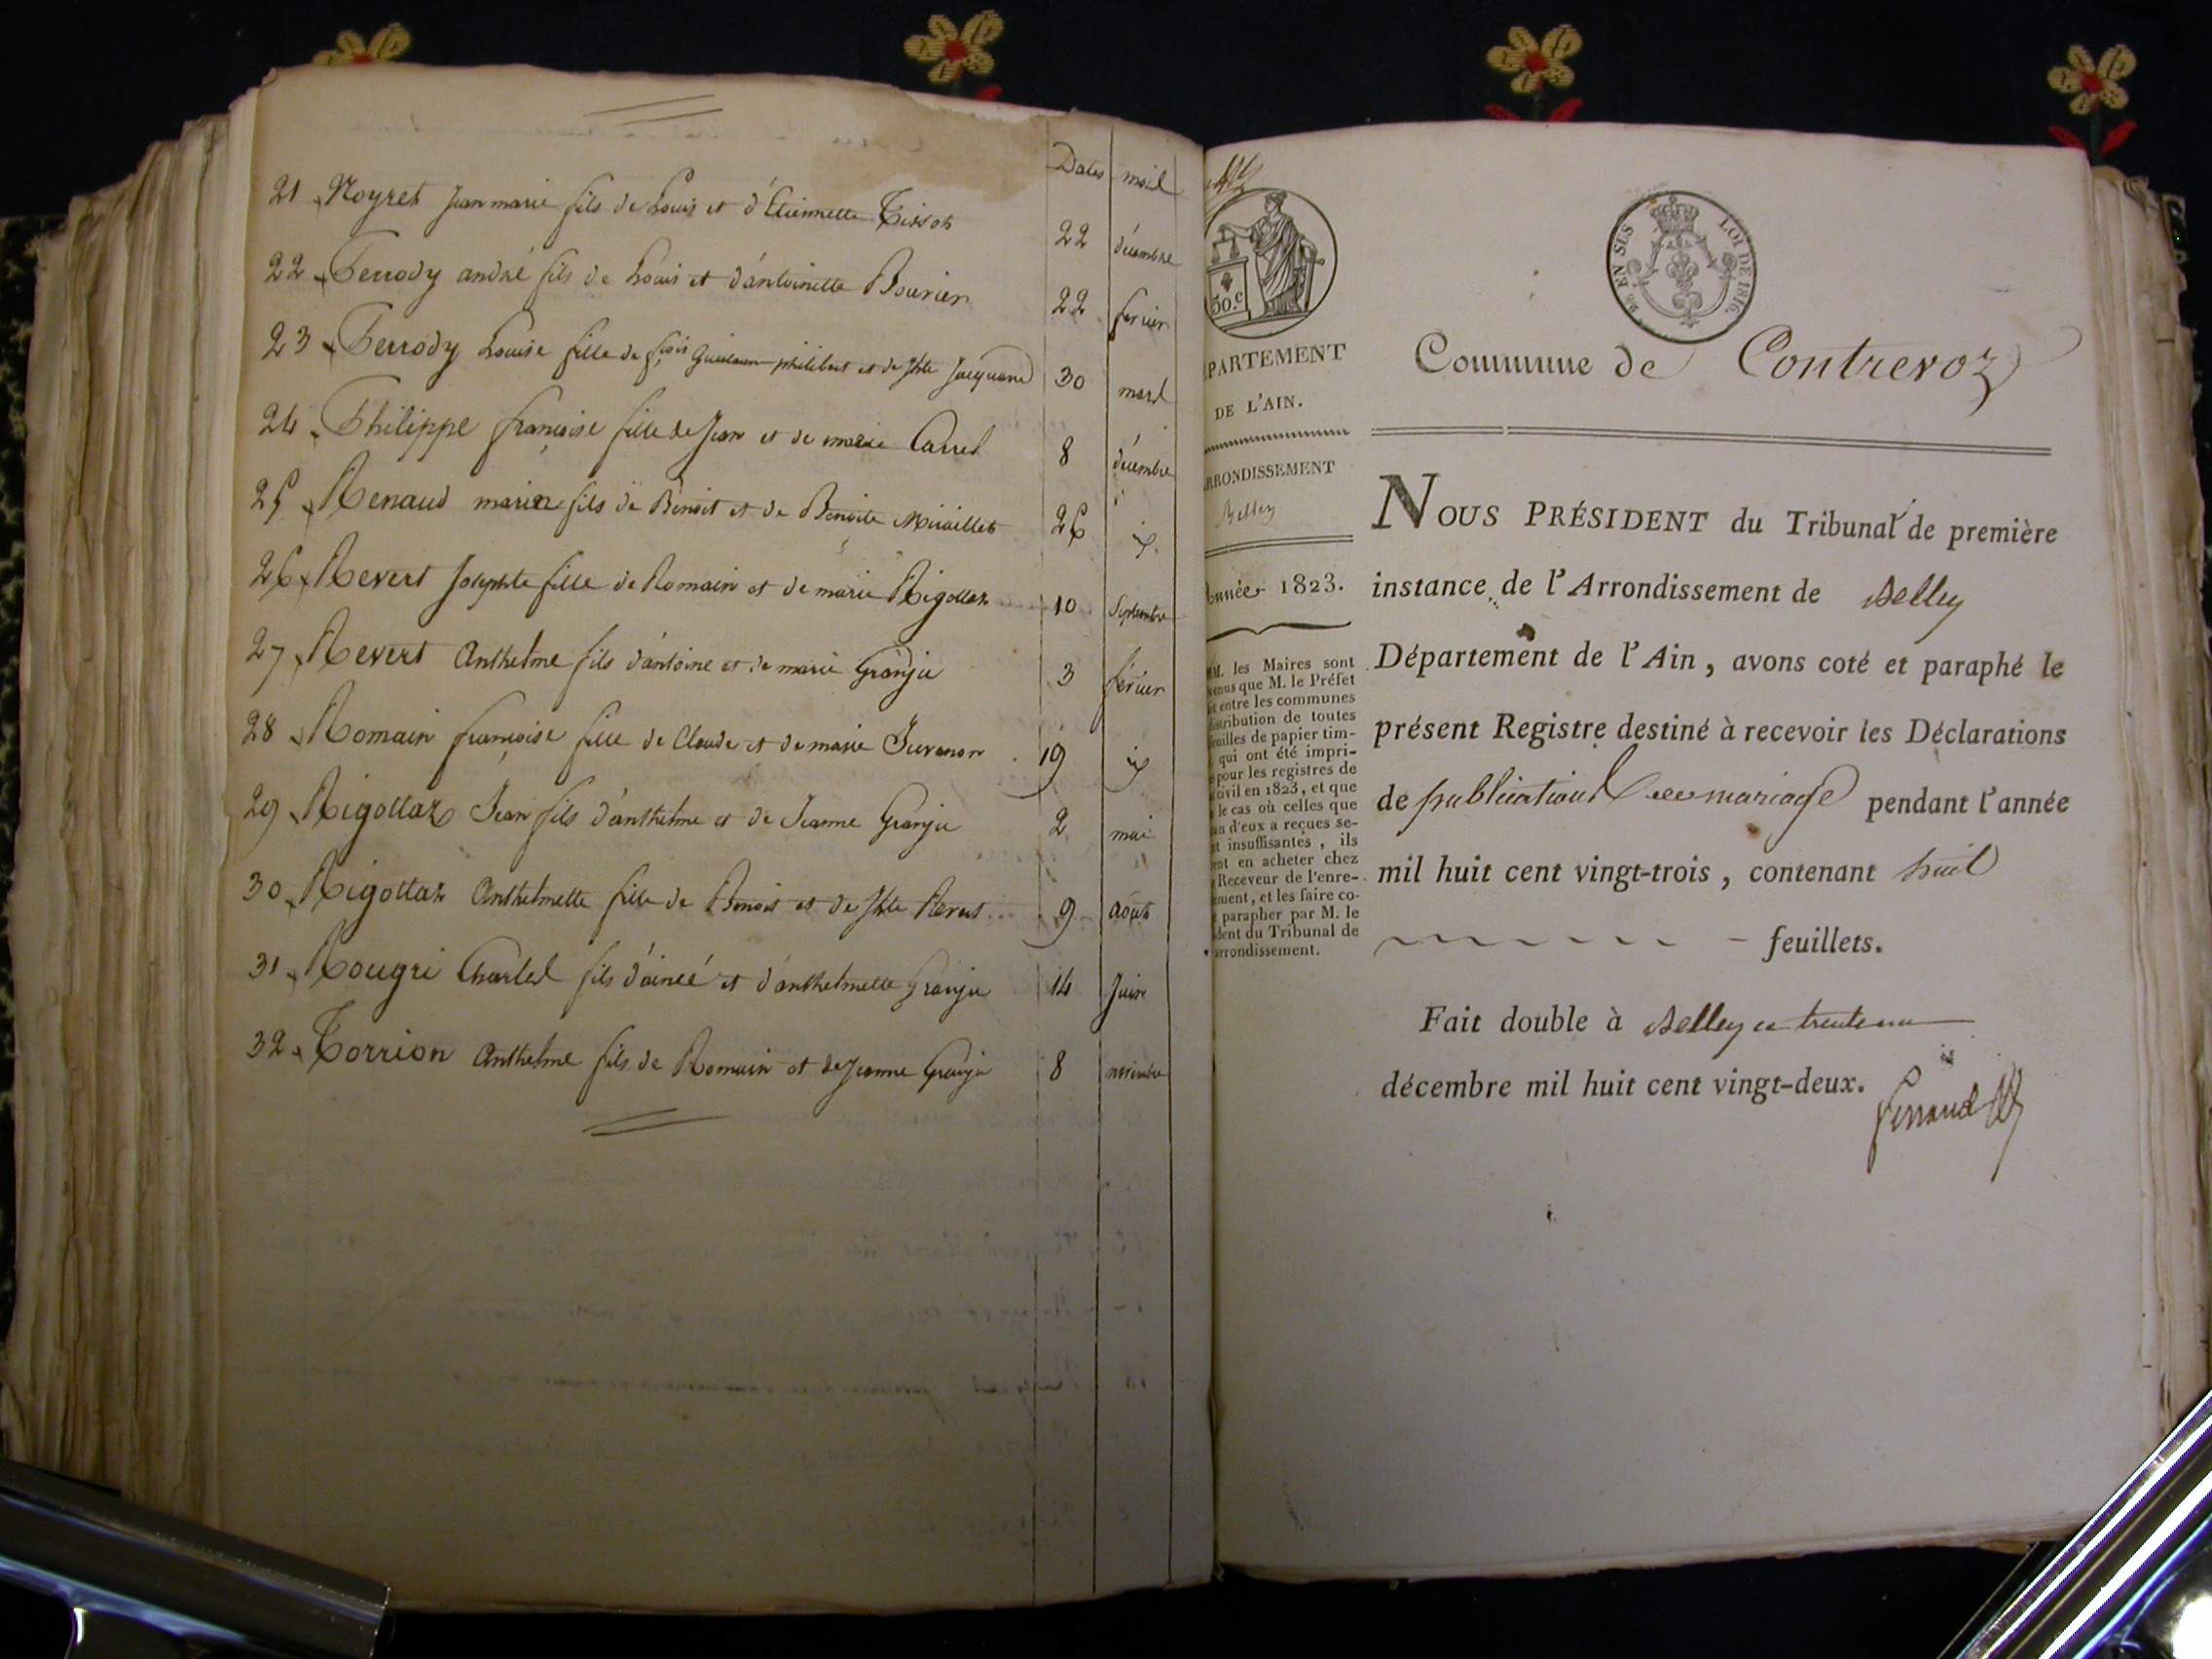 Dates mois
21 Noyret Jean marie fils de Louis et d'Etiennette Tissot 22 décembre
22 Perrody andré fils de Louis et d'antoinette Bouvier 22 fevrier
23 Perrody Louise fille de fçois Guillaume philibert et de Jhte Jacquand 30 mars
24 Philippe françoise fille de Jean et de marie Carrel 8 décembre
25 Renaud marin fils de Benoit et de Benoite Miraillet 26 id.
26 Revert Josephte fille de Romain et de marie Rigottaz 10 Septembre
27 Revert Anthelme fils d'antoine et de marie Granju 3 fevrier
28 Romain françoise fille de Claude et de marie Juvanon 19 id
29 Rigottaz Jean fils d'anthelme et de Jeanne Granju 2 mai
30 Rigottaz Anthelmette fille de Benoit et de Jhte Revert 9 août
31 Rougri Charles fils d'aimé et d'anthelmette Granju 14 Juin
32 Torrion Anthelme fils de Romain et de Jeanne Granju 8 novembre
50.c
EN SUS LOI DE 1816.
PARTEMENT
DE L'AIN.
RRONDISSEMENT
Belley
Année 1823.
MM. les Maires sont
que M. le Préfet
entre les communes
distribution de toutes
feuilles de papier tim-
qui ont été impri-
pour les registres de
civil en 1823, et que
le cas où celles que
un d'eux a reçues se-
insuffisantes, ils
en acheter chez
Receveur de l'enre-
ment, et les faire co-
parapher par M. le
dent du Tribunal de
arrondissement.
Commune de Contrevoz
NOUS PRÉSIDENT du Tribunal de première
instance de l'Arrondissement de Belley
Département de l'Ain, avons coté et paraphé le
présent Registre destiné à recevoir les Déclarations
de publications de mariage pendant l'année
mil huit cent vingt-trois, contenant huit
feuillets.
Fait double à Belley le trente un
décembre mil huit cent vingt-deux.